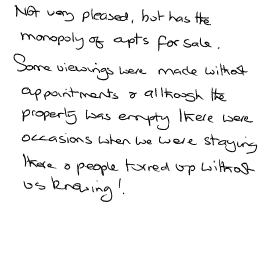 Not very pleased, but has the
monopoly of apts for sale.
Some viewings were made without
appointments & allthough the
property was empty there were
occasions when we were staying
there & people turned up without
us knowing!